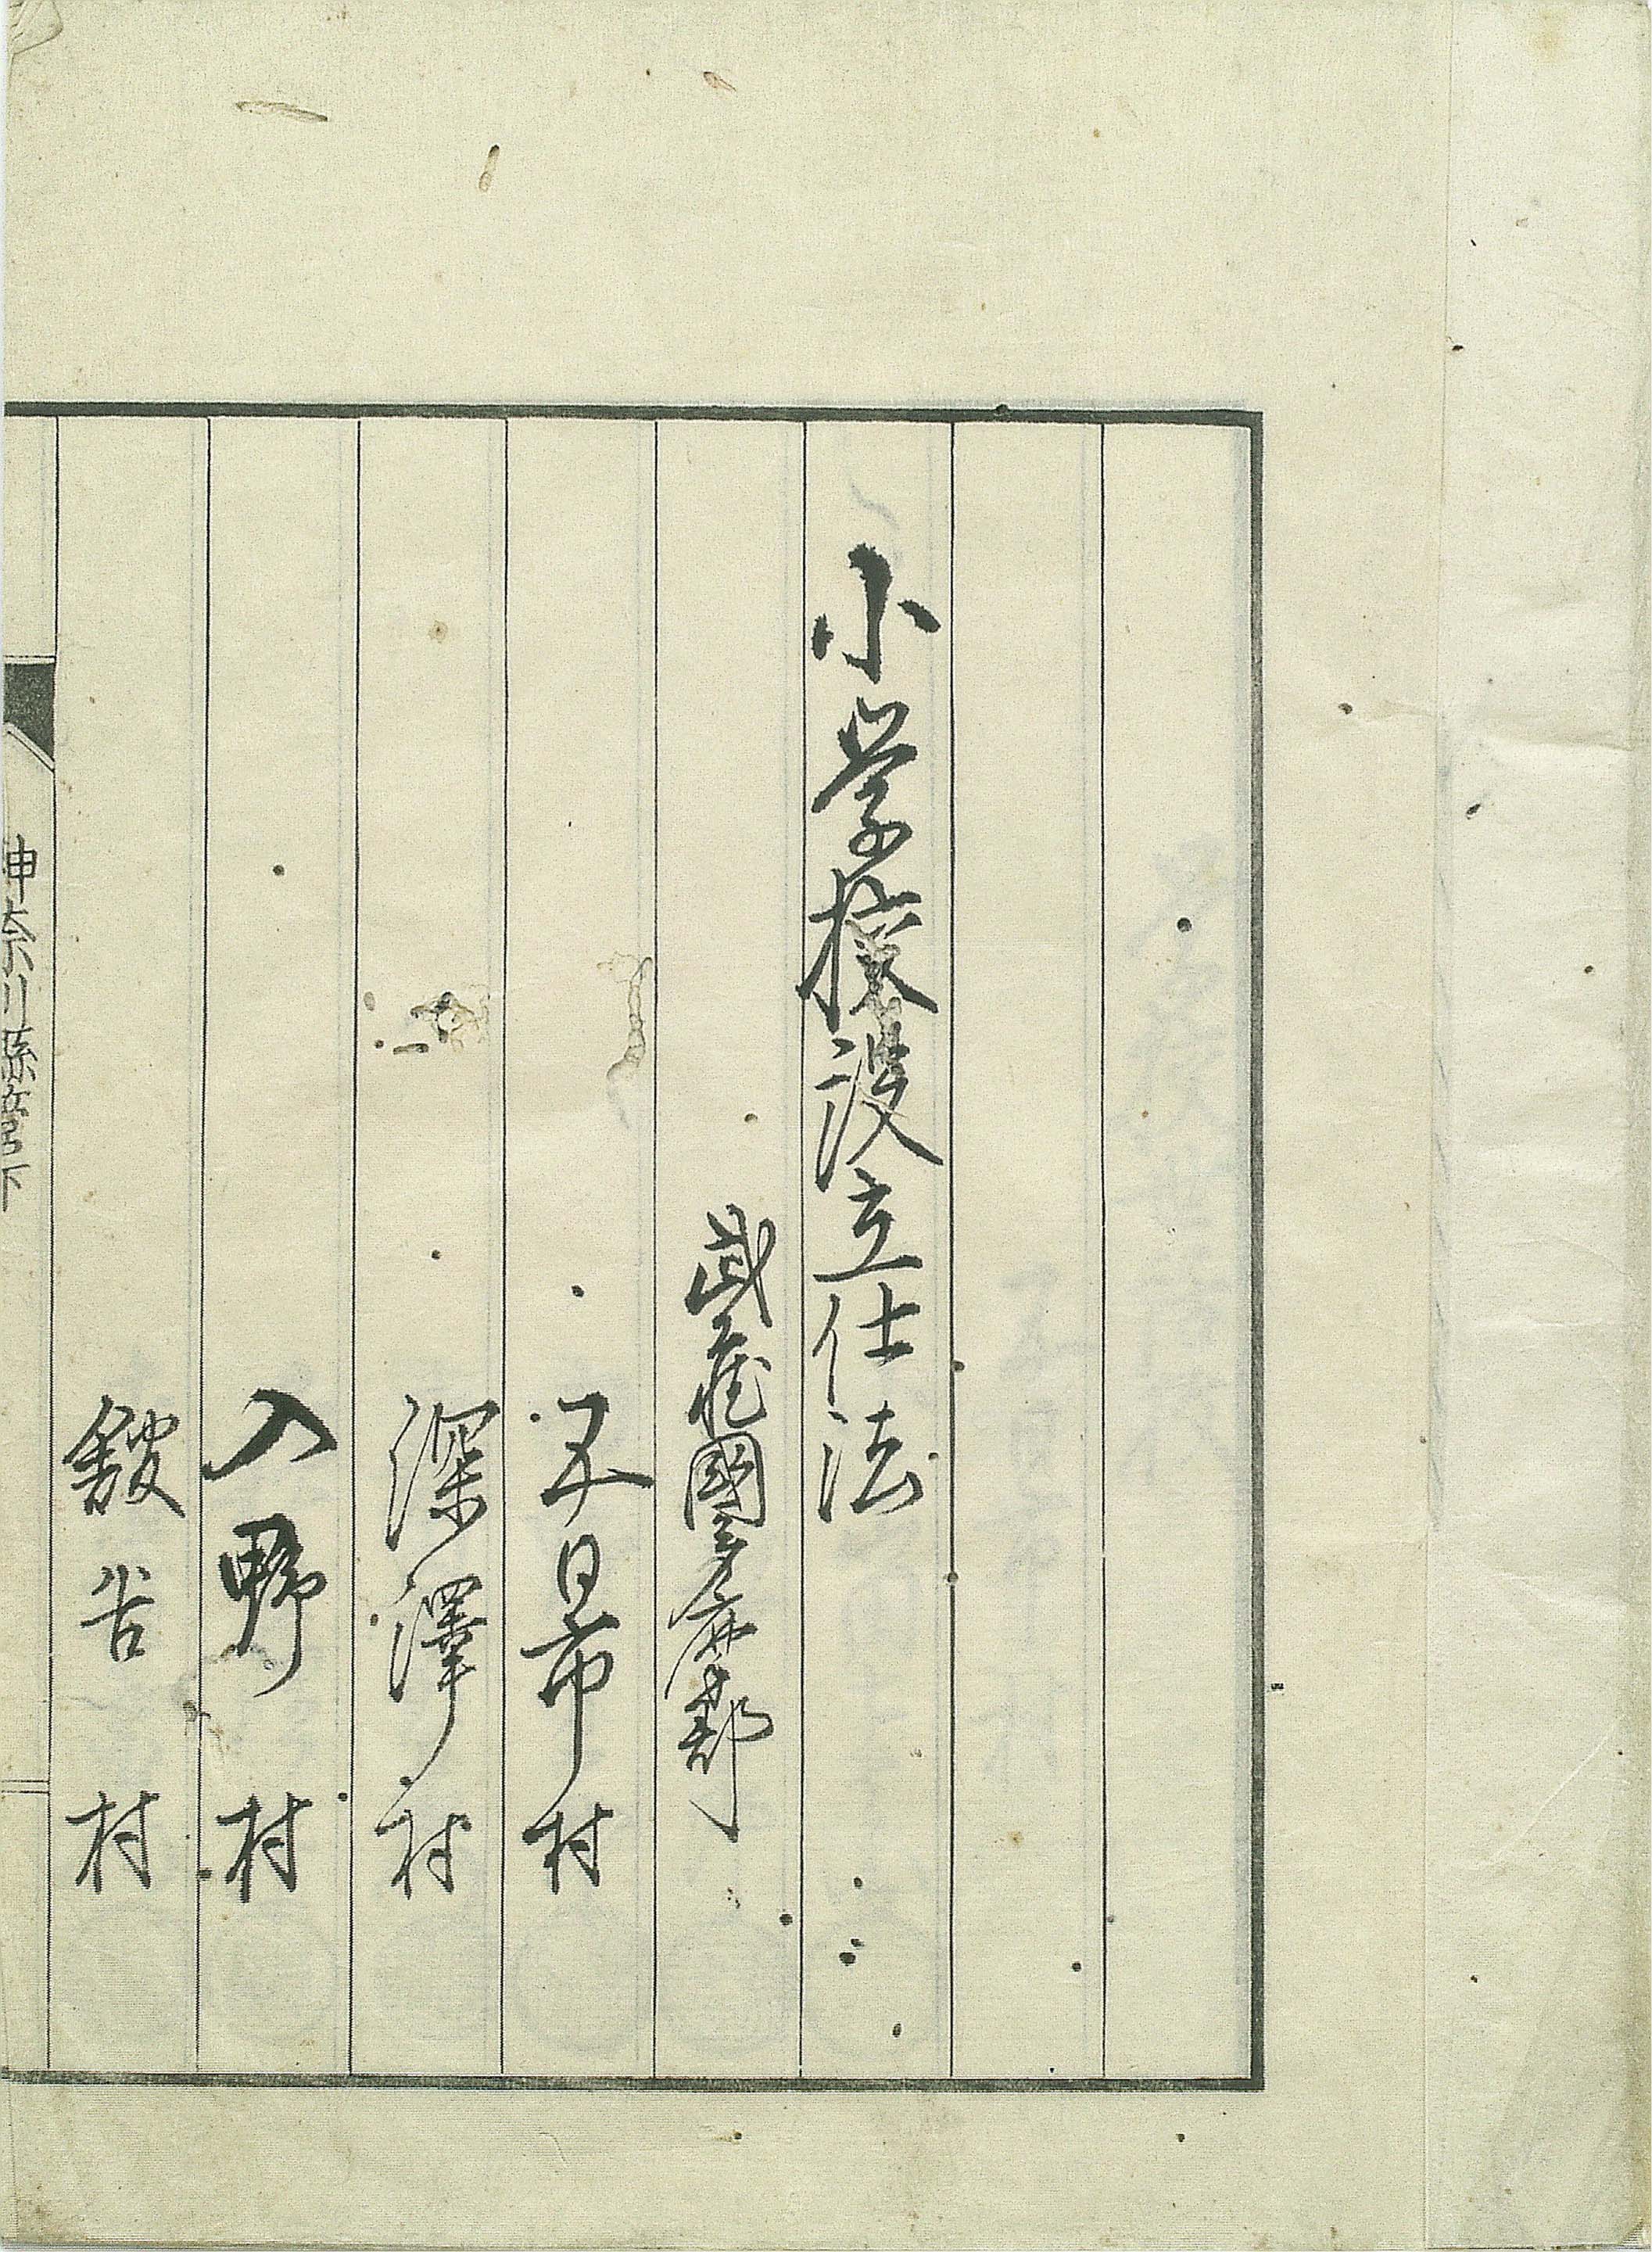 小学校設立仕法
武蔵國多麻郡
五日市村
深澤村
入野村
舘谷村
神奈川縣管下